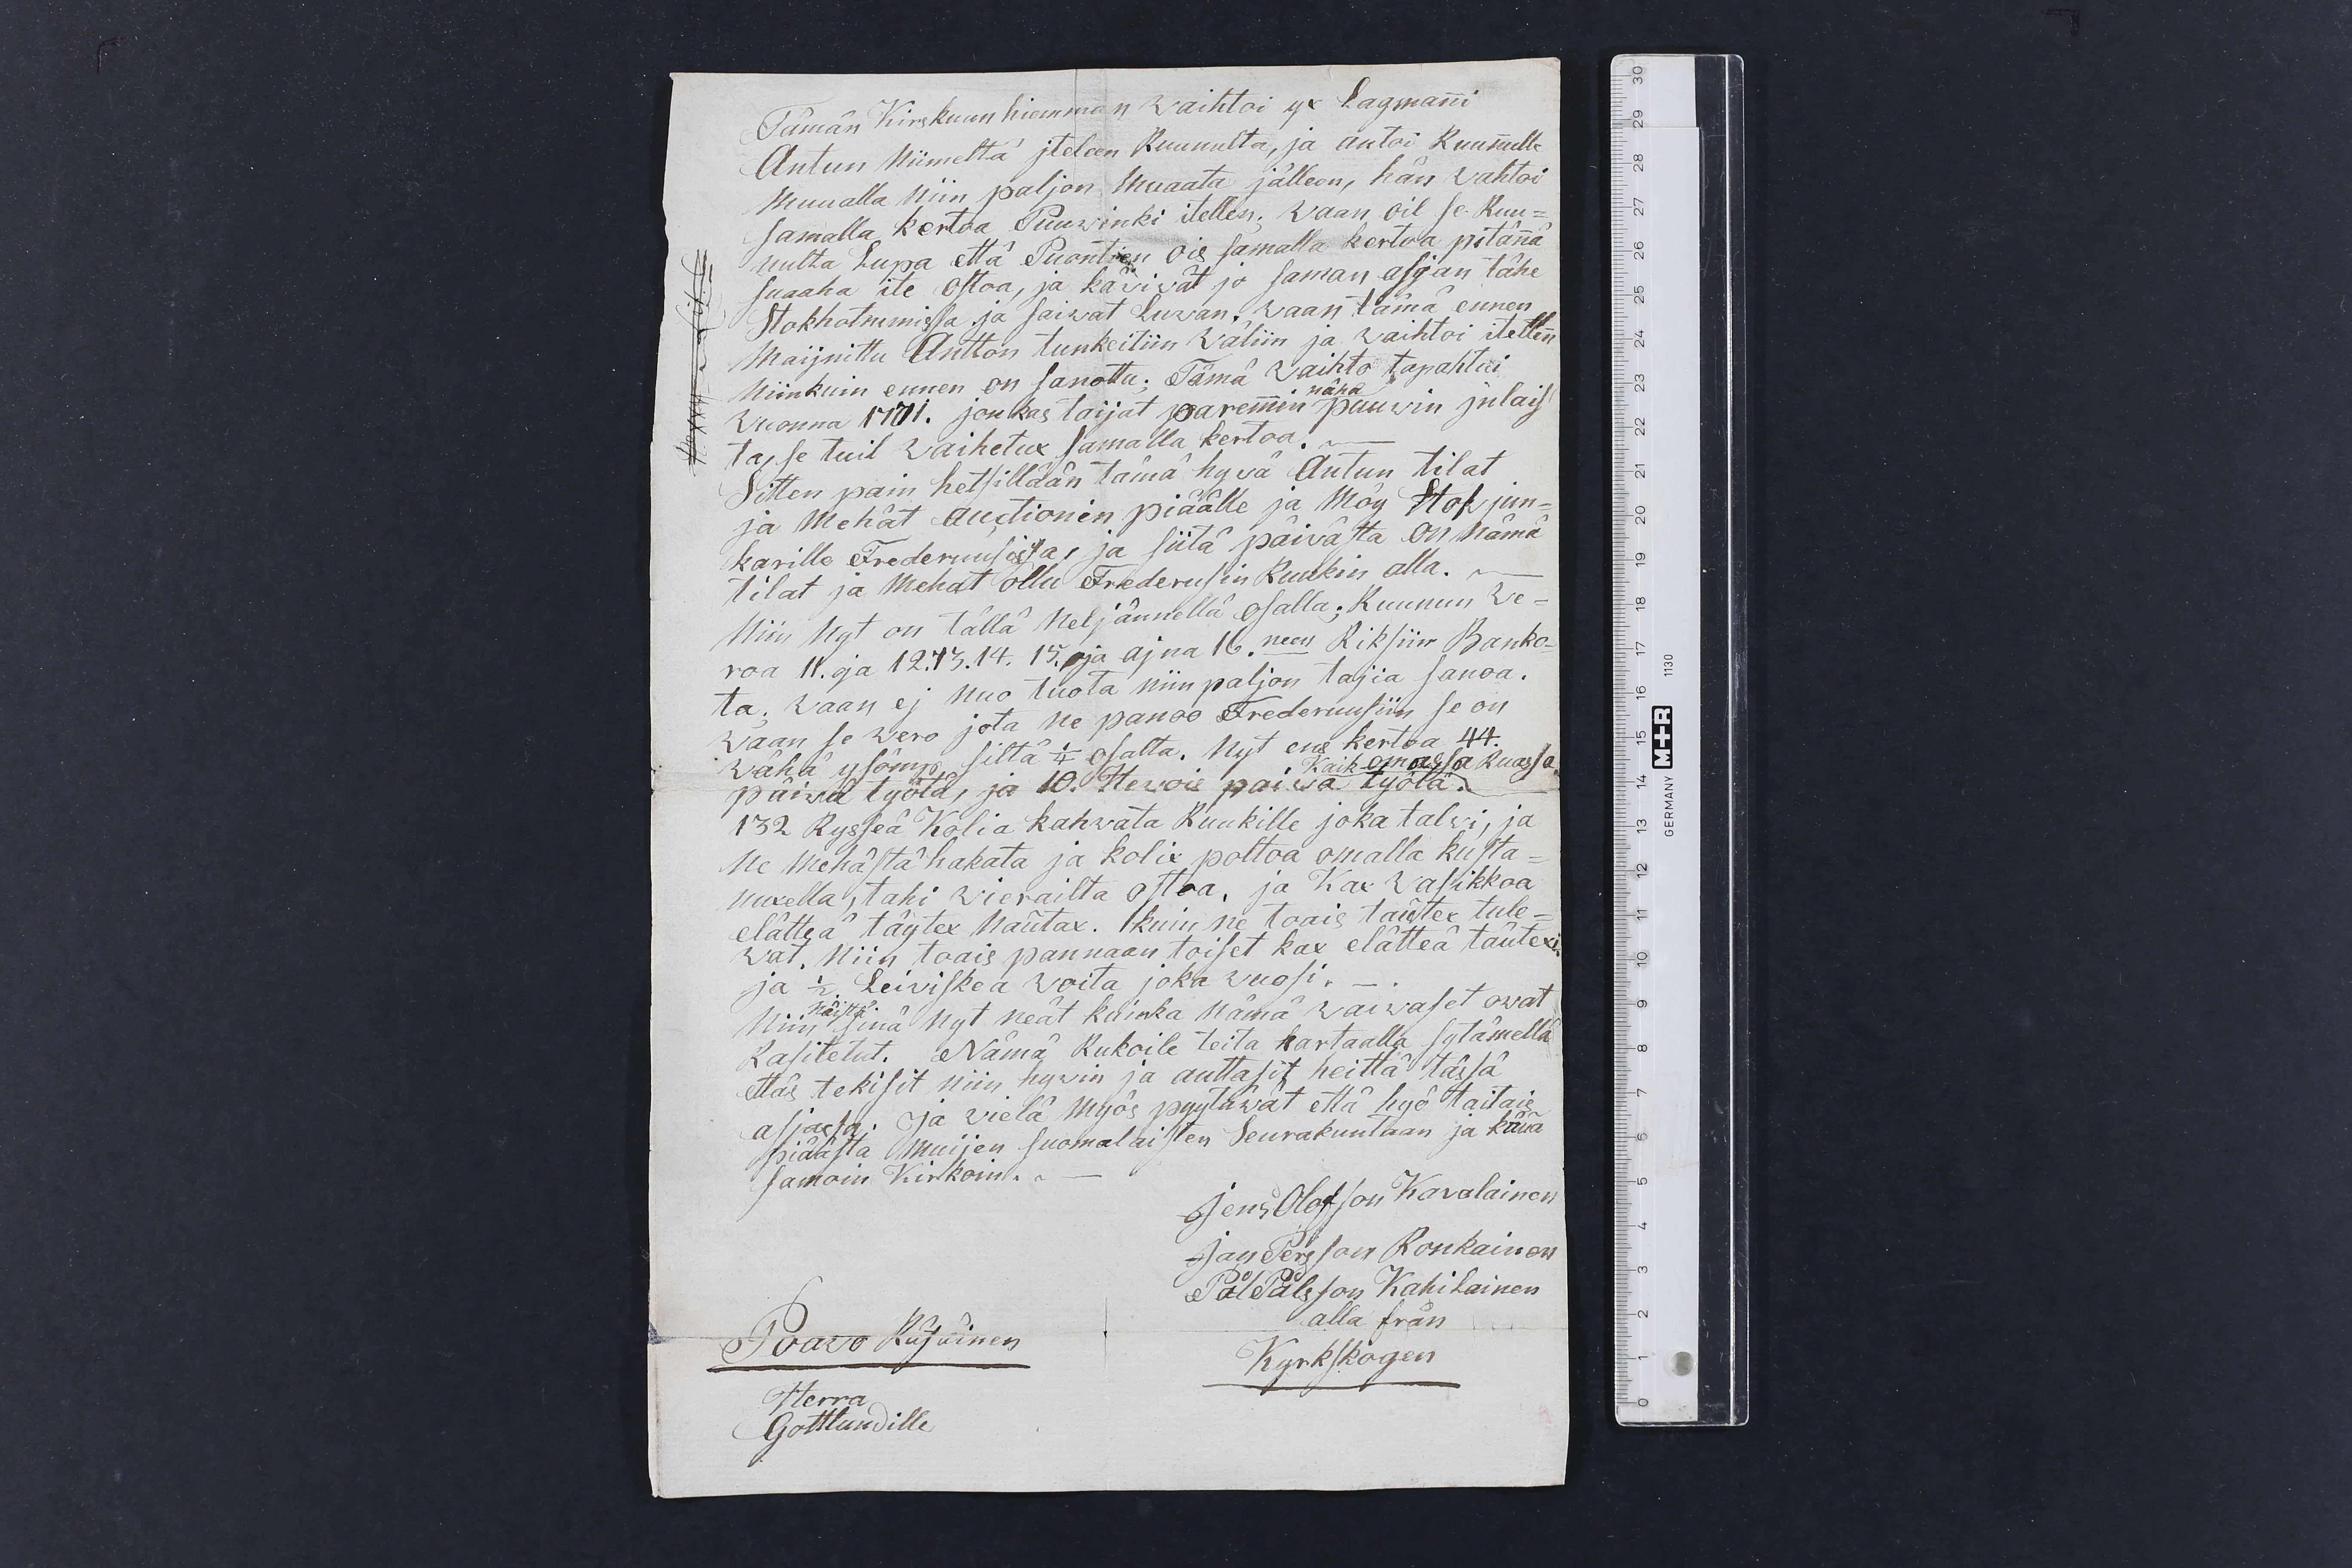 Tämän Kirskuun hiemman Waihtoi yx Lagmañi
Antun Niimeltä jteleen Ruunulta, ja antoi Ruuñulle
Muualla Niin paljon Muaata jälleen, hän vahtoi
samalla kertoa Puuwinki itellen. Waan oil se Ruu=
nulta Lupa että Puontien ois samalla kertoa pitäñä
suaaha ite ostoa, ja käviwät jo saman asjan tähe
Stokholmmissa ja saiwat Luwan. Waan tämä ennen
Maijnittu Antton tunkeitiin Väliin ja Vaihtoi itelleñ
Niinkuin ennen on sanottu; Tämä Vaihto tapahtui
Wuonna 1701. jonkas taijat paremin nähä puuwin julais
ta, se tuil Vaihetux samalla kertoa.
Sitten pain hetsilldän tämä hyvä Antun tilat
ja Mehät Auctionin piäälle ja Möy Stokjun=
karille Frederuusista, ja siitä päivästa on Nämä
tilat ja Mehat ollu Frederusin Ruukin alla.
Niin Nyt on tällä Neljännellä osalla; Ruunun We=
roa 11. ja 12. 13. 14. 15. ja ajna 16. neen Riksiin Banko=
ta, Waan ej Nuo tuota niin paljon tajia sanoa.
Waan se Wero jota Ne panoo Frederuusiin se on
Vähä ysömp siltä ¼ osalta. Nyt ens kertoa 44.
päiwä työtä, ja 10. Hewois paiwa työtä. Kaik omassa Ruassa.
132 Rysseä Kolia kahwata Ruukille joka talwi, ja
Ne Mehästä hakata ja kolix polttoa omalla kusta=
nuxella, tahi Wierailta ostoa, ja Kax Vasikkoa
elätteä täytex Nautax. Ikuin ne toais täutex tule=
wat. Niin toais pannaan toiset kax elätteä täutexi.
ja ½. Leiviskea Voita joka vuosi.
Niin Näistä sinä Nyt Neät kuinka Nämä Waiwaset owat
Rasitetut. Nämä Rukoile teita hartaalla sytämellä
ettäs tekisit niin hywin ja auttasit heittä tässä
asjassa. Ja vielä Myös pyytäwät että hyö taitais
piäästä Muijen suomalaisten Seurakuntaan ja käuä
samoin Kirkoin.
Jens Olofson Kavalainen
Jan Persson Ronkainen
Pål Pålsson Kahilainen
alla från
Kyrkskogen
Poavo Räisäinen
Herra
Gottlundille